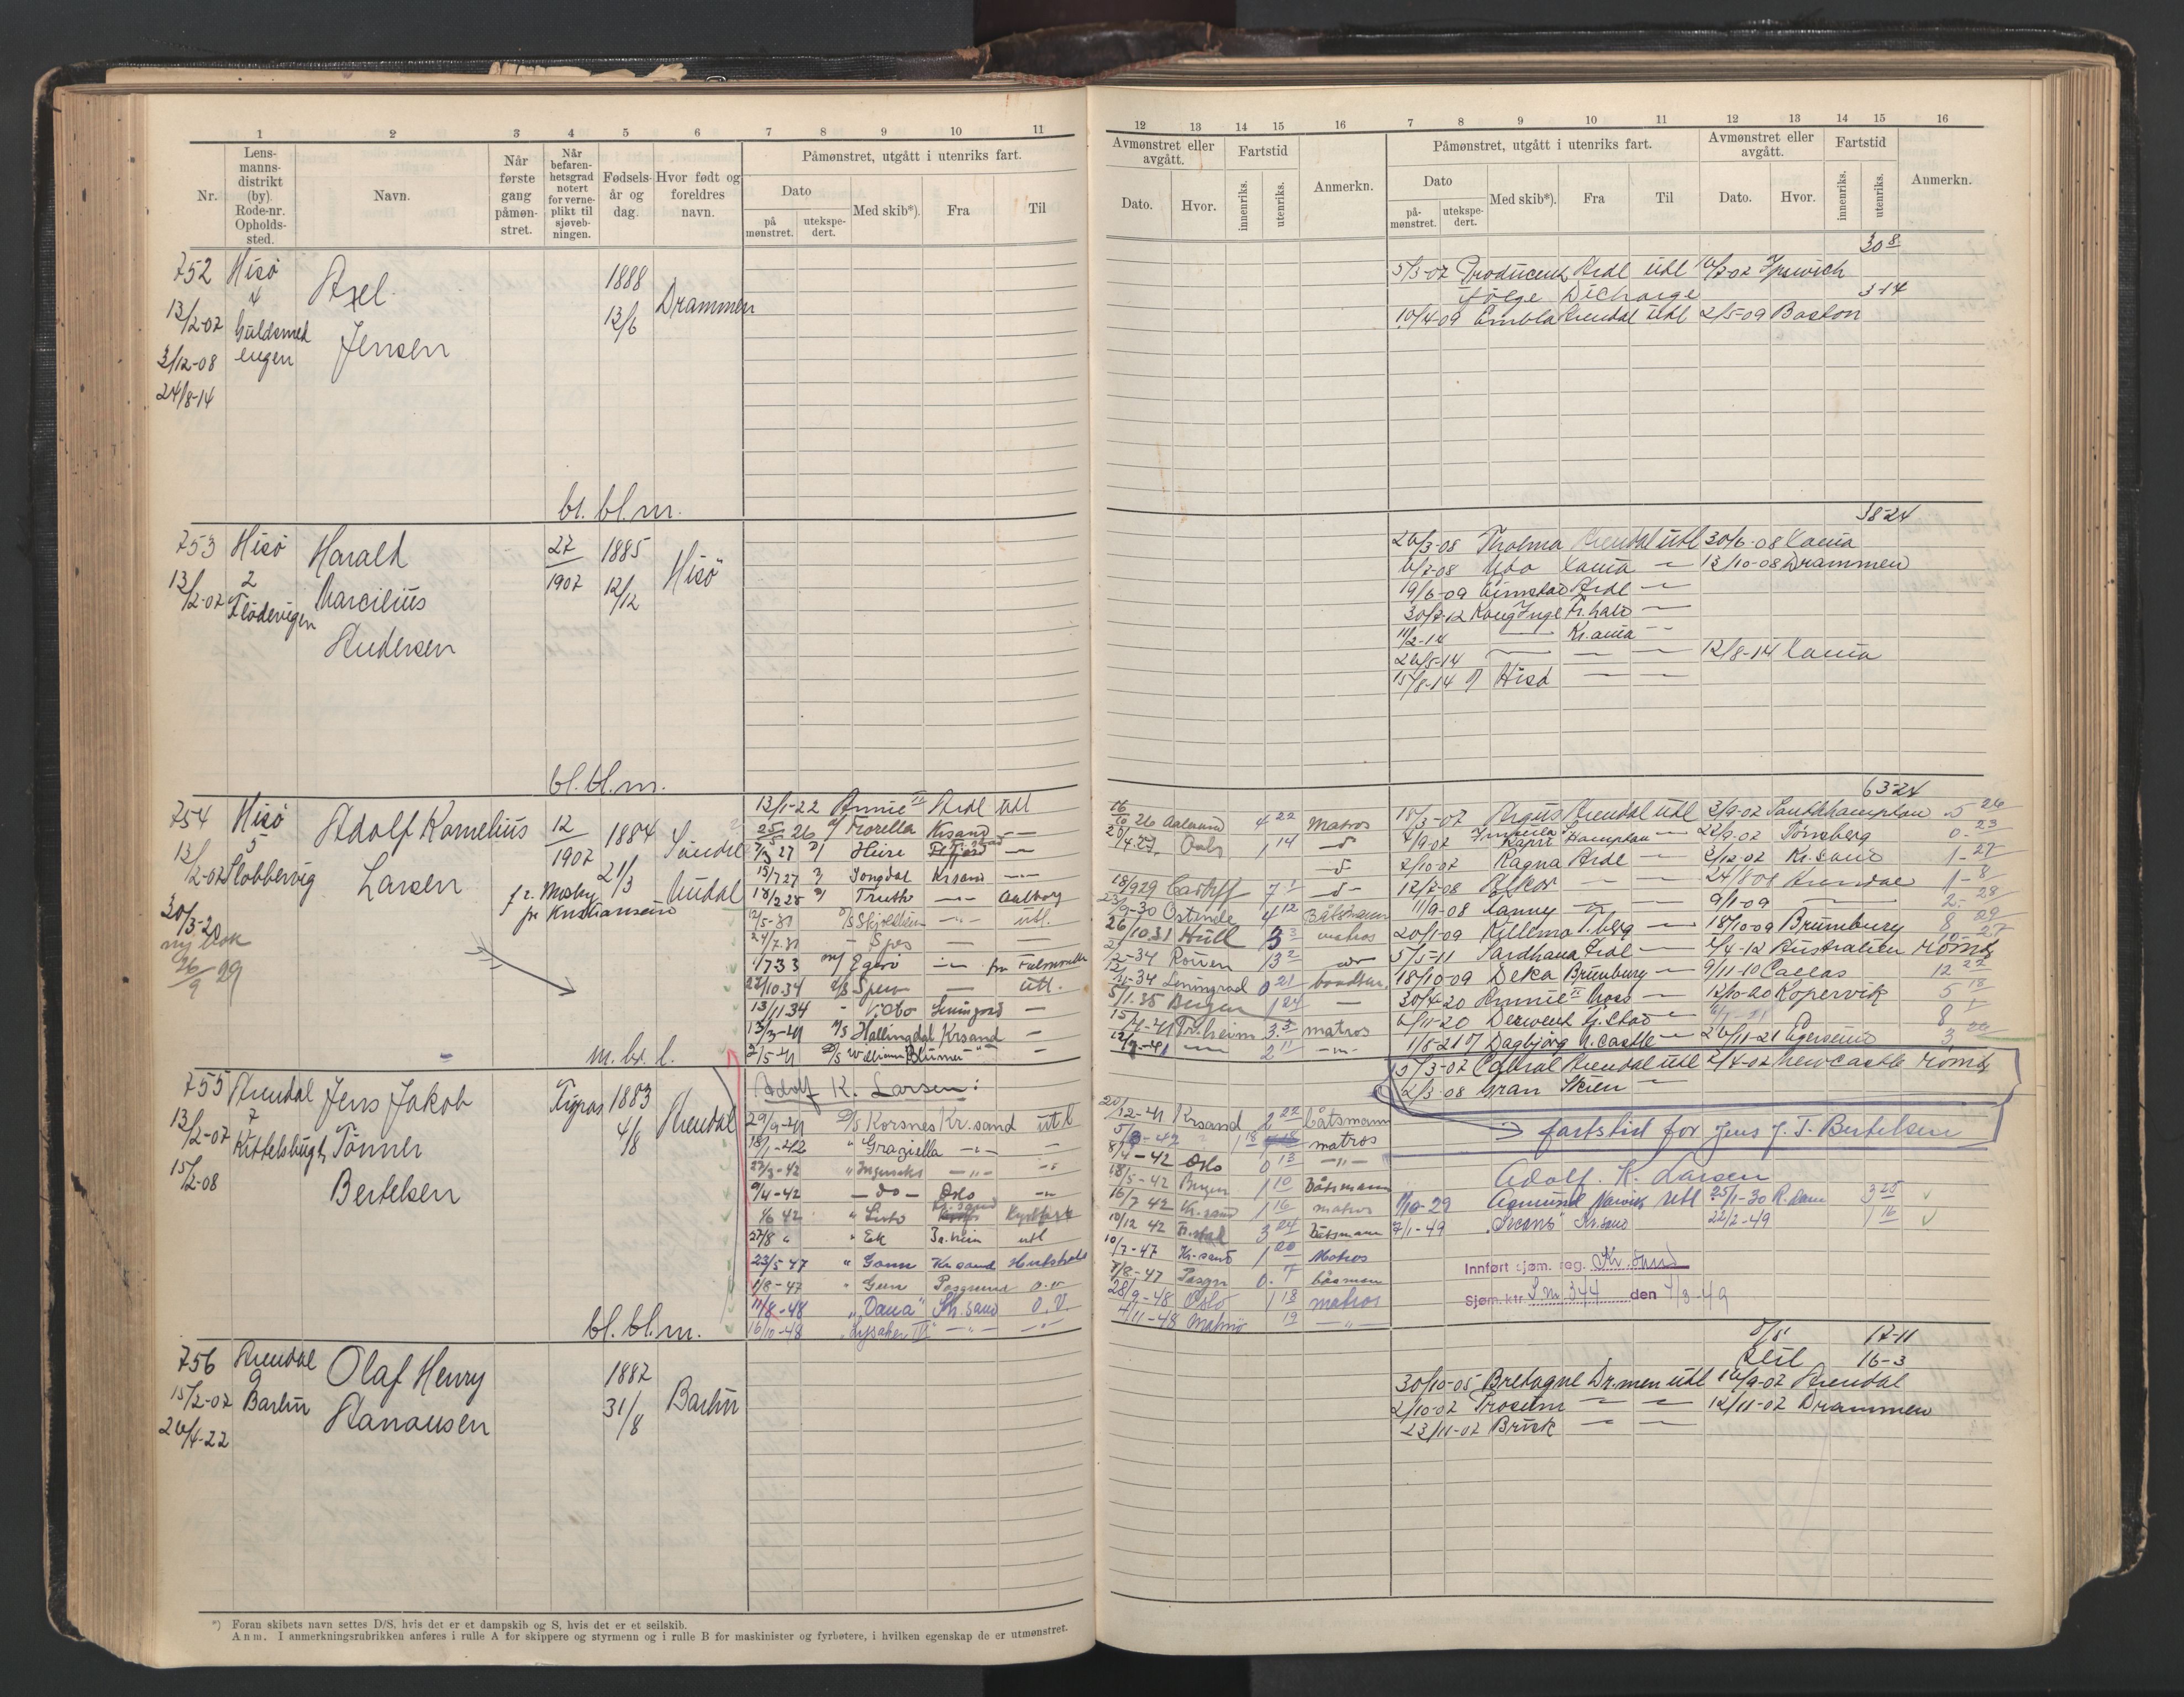 1 2 3 4 5 6 7 8 9 10 11
Nr.
Lens-
manns-
distrikt
(by).
Rode-nr.
Opholds-
sted.
Navn.
Når
første
gang
påmøn-
stret.
Når
befaren-
hetsgrad
notert
for verne-
plikt til
sjøveb-
ningen.
Fødsels-
år og
dag.
Hvor født og
foreldres
navn.
Påmønstret, utgått i utenriks fart.
Dato
på
mønstret.
utekspe-
dert.
Med skib*).
Fra
Til
752 Hisö Axel 1888 Drammen
13/2-07 4 Jensen 13/6
Guldsmed
3/12-08 engen
24/8-14
bl. bl. m.
753 Hisö Harald 27 1885 Hisö
13/2-07 2 Marcilius 1907 12/12
Flödevigen
Andersen
bl. bl. m.
754 Hisö Adolf Kornelius 12 1884
13/2-07 5 Larsen 1907 21/3
Slobbervig
fr Kristiansand
30/3-20
ny bok
26/9 29
m. br. l.
13/1-22 Annie II Ardl utl
25/5 26 Fiorella Krsand
7/3 27 Heire
15/7 27 Songdal Krsand
18/2 28 Truth Aalborg
12/5-30 utl.
24/7-31 Spes
1/7 33 Egerö
22/10-34 D/S Spes utl.
13/11 34
13/3-41 M/S Hallingdal Krsand
2/5-41 D/S William Blumer
755 Arendal Jens Jakob 1883 Arendal
13/2-07 7 Tönner 4/8
Kittelsbugt
15/2-08 Bertelsen
bl. bl. m.
Adolf K. Larsen:
29/9-41 D/S Korsnes Kr.sand utl
18/1-42 " Graziella
23/3-42
9/4-42 — do — Oslo
1/6 42 " Listo
27/8 " " Ek Tr.heim utl
23/5-47 Kr.sand
1/8-47
11/8-48 "Vana" Kr.sand O.V.
16/10-48 "Lysaker IV"
756 Arendal Olaf Henry 1882 Barbu
15/2-07 9 Aanonsen 31/8
Barbu
26/4-22
*) Foran skibets navn settes D/S, hvis det er et dampskib og S, hvis det er et seilskib.
Anm. I anmerkningsrubrikken anføres i rulle A for skippere og styrmenn og i rulle B for maskinister og fyrbøtere, i hvilken egenskap de er utmønstret.
12 13 14 15 16 7 8 9 10 11 12 13 14 15 16
Avmønstret eller
avgått.
Dato.
Hvor.
Fartstid
innenriks.
utenriks.
Anmerkn.
Påmønstret, utgått i utenriks fart.
Dato
på-
mønstret.
utekspe-
dert.
Med skib*).
Fra
Til
Avmønstret eller
avgått.
Dato.
Hvor.
Fartstid
innenriks.
utenriks.
Anmerkn.
30 8
5/3-07 Producent Ardl utl 16/7-07 Ipswich
ifölge Dicharge 3-14
10/4-09 Embla Arendal utl 2/5-09 Boston
38-24
26/3-08 Thelma Arendal utl 30/6-08 Xania
6/7-08 Xania — 13/10-08 Drammen
19/6-09 Grimstad Ardl —
30/7-12 Kong Inge —
11/2-14 — Kr.ania —
26/5-14 — — — 12/8-14 Xania
15/8-14 Hisö — —
63-24
16/6 26 Aalesund 4 22 Matros
20/4-27 Oslo 1 14
18/9 29 Cardiff 7 1
23/9-30 Ostinde 4 12 Båtsmann
26/10 31 Hull 3 3 matros
2/2-34 Rouen 13 2
Leningrad 0 21
5/1.35 Bergen 1 24 —
15/4-41 Tr.heim 3.3 matros
12/7-41 2 11
18/3-07 Argus Arendal utl 3/9-07 Southhampton 5 26
7/9-07 22/9-07 Tönsberg 0.23
2/10-07 Ragna Ardl — 3/12-07 Kr.sand 1-27
12/7-08 Alkor — — 24/8 08 Arendal 1-8
11/9-08 Fanny — — 9/1-09 — 2.28
20/1-09 Killena T.berg — 18/10-09 Brunsbury 8 29
5/5-11 Sardhana Ardl — 2/4-12 Australien römt
18/10-09 Deka Brunsbury — 9/11-10 Callao 12 22
30/4-20 Annie II Moss — 12/10-20 Kopervik 5 18
6/11-20 Derwent — 8
1/8-21 Dagbjörg — 26/11-21 Egersund 3
5/3-07 Cabral Arendal utl 2/4-07 Newcastle römt
2/3-08 Gran Skien —
→ fartstid for Jens J. T. Bertelsen
20/12-41 Krsand 2 22 båtsmann
matros
8/4-42 Oslo 0 13 — " —
18/5-42 Bergen 1 10 Båtsmann
16/7 42 Kr.sand 1 16 matros
10/12 42 3 24 Båtsmann
10/7-47 Kr.sand 1 20 Matros
7/8-47 0.7
28/9-48 Oslo 1 18 matros
4/11-48 Malmö 19 — " —
Adolf. K. Larsen
Agmund Narvik utl 25/1-30 R.dam 3 25
7/1-49 Kr.sand 22/2-49 1 16
Innført sjøm. reg. Kr.sand
Sjøm. ktr. S.M. 344 den 4/3-49
D/S 17-11
Seil 16-3
30/10-05 Bretagne Dr.men utl 16/9-07 Arendal
2/10-07 — — 12/11-07 Drammen
23/11-07 Brisk — —